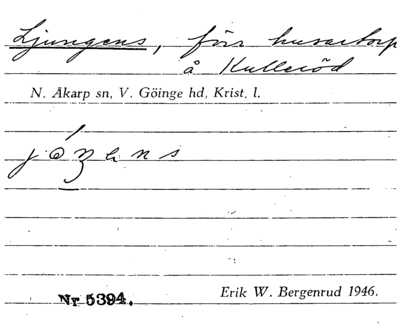 Ljungens, förr husartorp
å Kulleröd
N. Åkarp sn, V. Göinge hd, Krist. l.
Nr 5394.
Erik W. Bergenrud 1946.